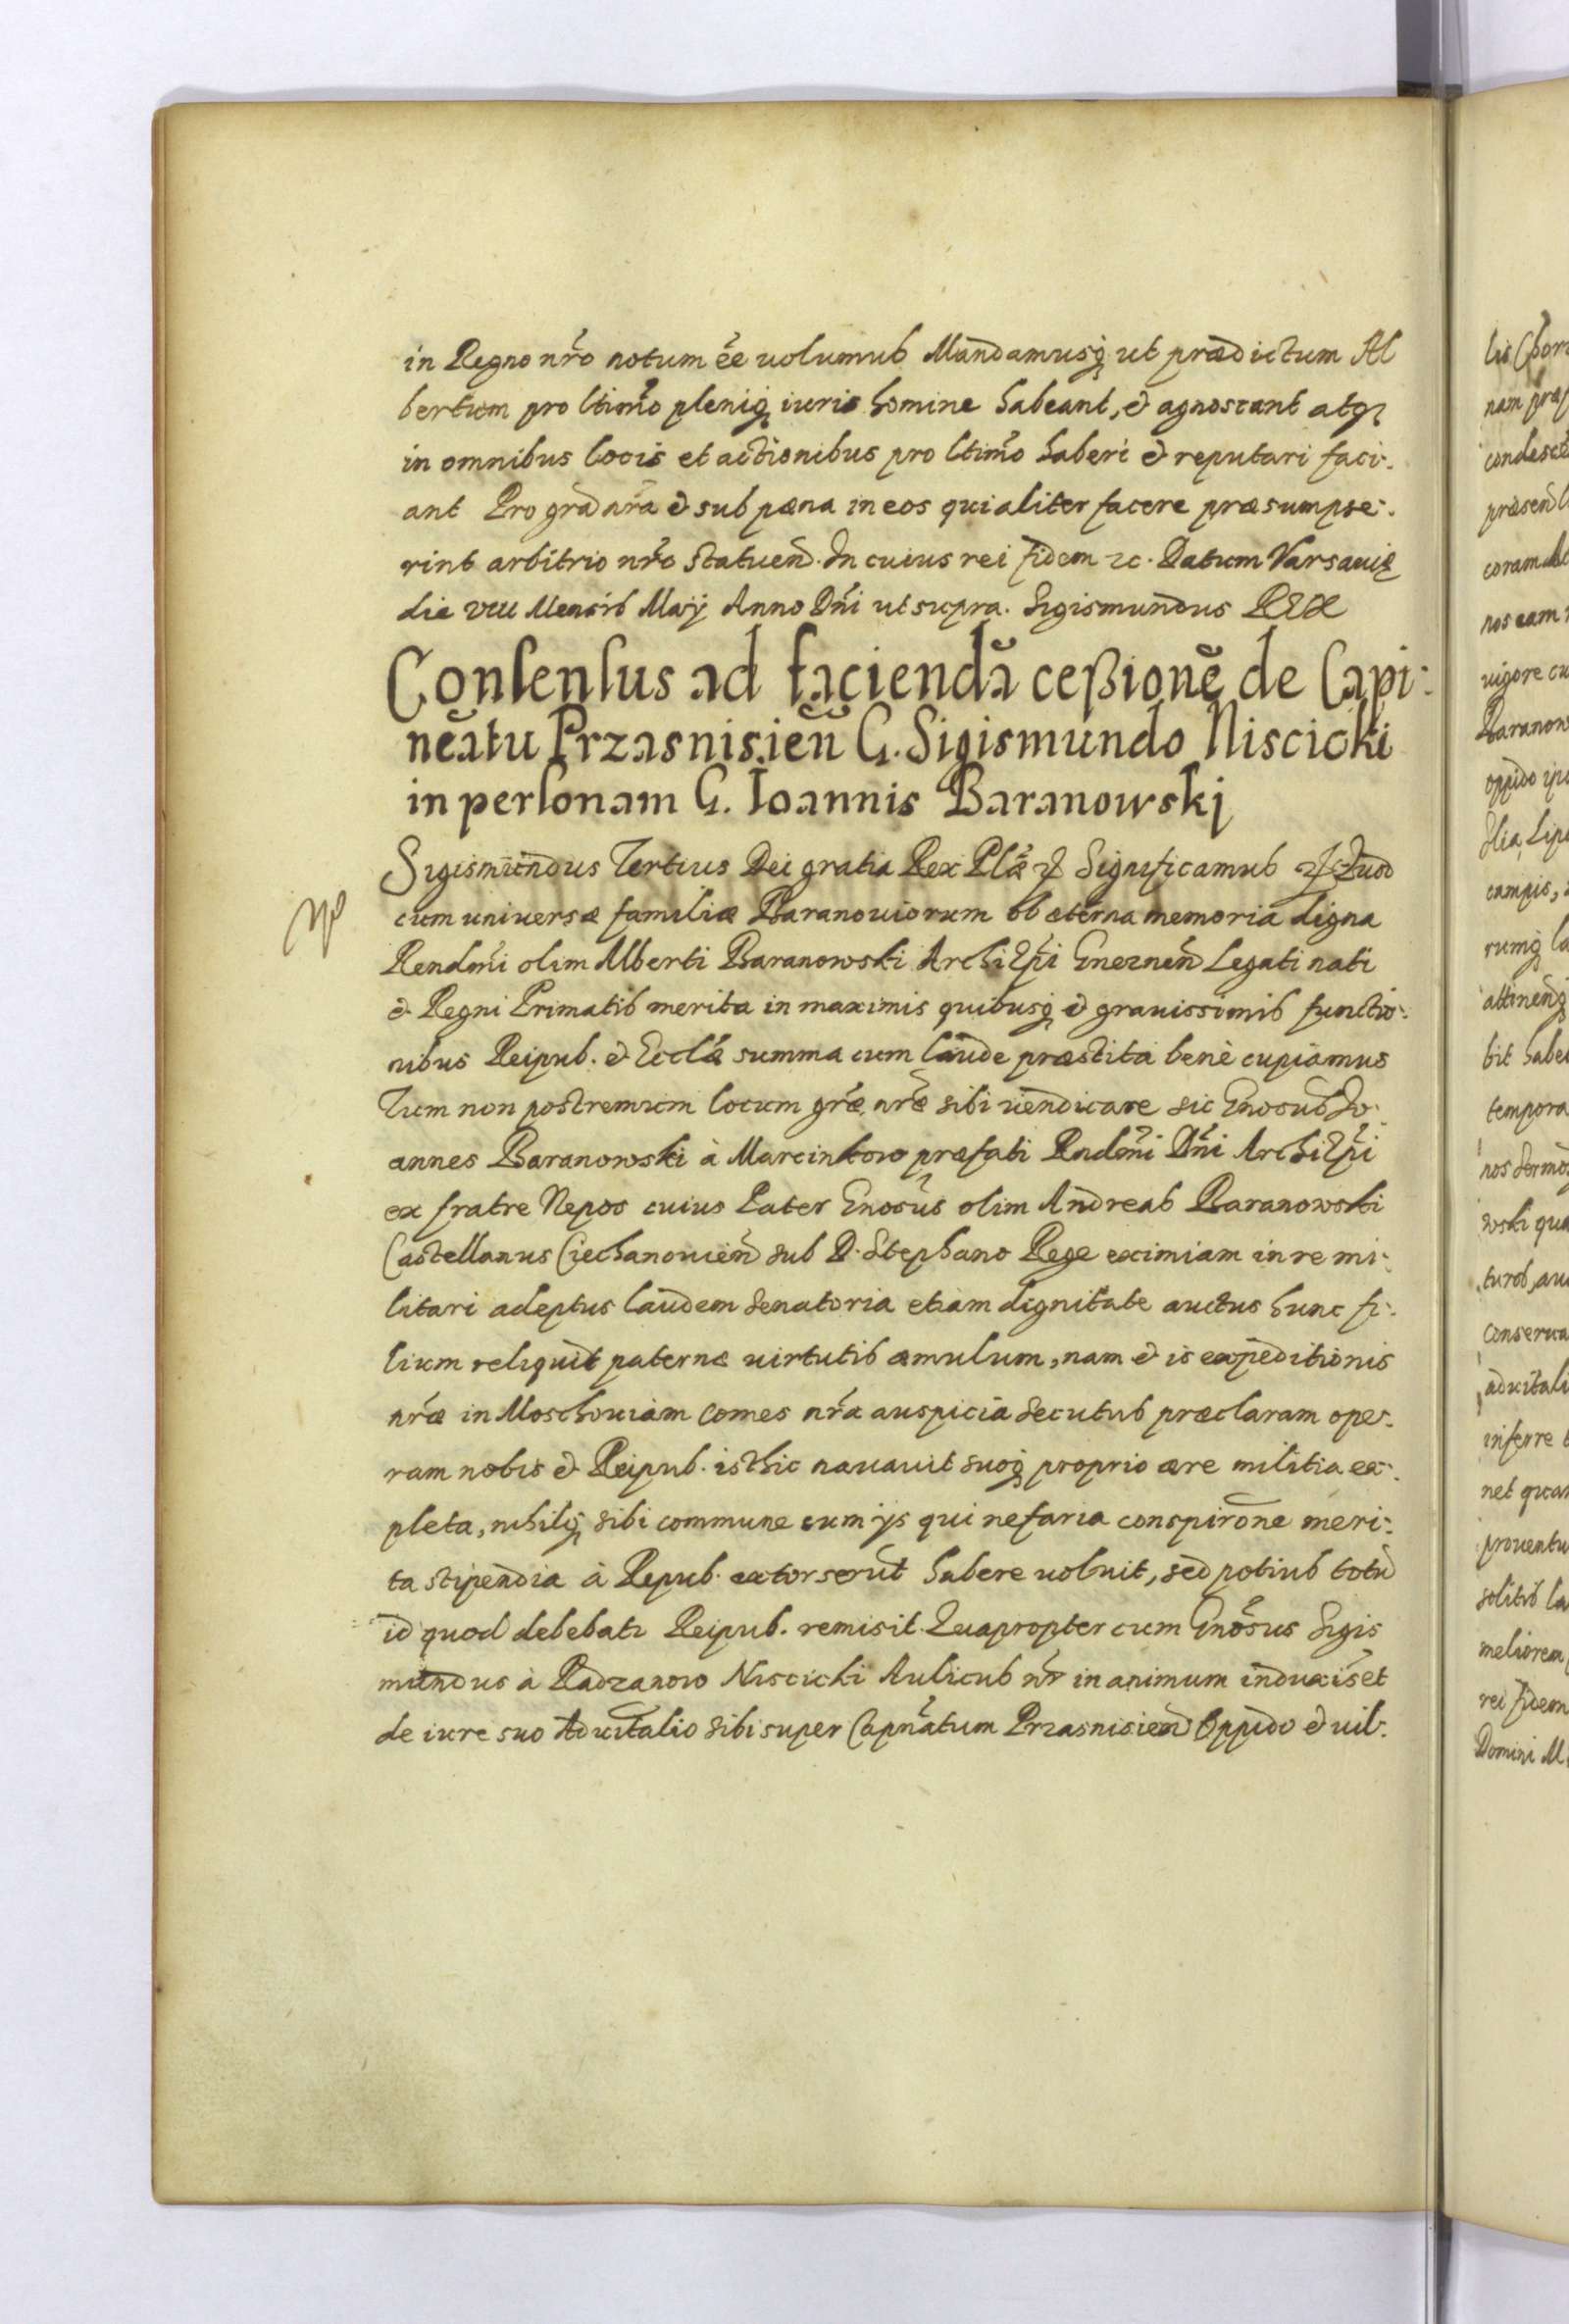 in Regno nr̃o notum ẽe uolumus Mandamusq ut prædictum Al
bertum pro ltimo pleniq iuris homine habeant, & agnoscant atq
in omnibus locis et actionibus pro ltimo haberi & reputari faci:
ant Pro gra nr̃a & sub pæna in eos qui aliter facere præsumpse:
rint arbitrio nr̃o statuen. In cuius rei fidem ꝛc. Datum Varsauię
die VIII Mensis Maij Anno Dñi ut supra. Sigismundus REX
Consensus ad faciendã ceßionẽ de Capi:
neatu Przasnisien̄ G. Sigismundo Niscicki
in personam G. Ioannis Baranowskj
Sigismundus Tertius Dei gratia Rex Plæ ꝛc Significamus ꝛc Quod
cum universæ familiæ Baranouiorum ob æterna memoria digna
Rendmi olim Alberti Baranowski ArchiEpi Gneznen Legati nati
& Regni Primatis merita in maximis quibusq & grauissimis functio:
nibus Reipub. & Ecclæ summa cum laude præstita benè cupiamus
Tum non postremum locum græ nr̃æ sibi uendicare sic Gnosus Jo:
annes Baranowski à Marcinkowo præfati Rndmi Dñi ArchiEpi
ex fratre Nepos cuius Pater Gnosus olim Andreas Baranowski
Castellanus Ciechanouien sub D. Stephano Rege eximiam in re mi:
litari adeptus laudem senatoria etiam dignitate auctus hunc fi:
lium reliquit paternæ uirtutis æmulum, nam & is expeditionis
nr̃æ in Moschouiam comes nr̃a auspicia secutus præclaram ope:
ram nobis & Reipub. isthic nauauit suoq proprio ære militia ex:
pleta, nihilq sibi commune cum ijs qui nefaria conspirone meri:
ta stipendia à Repub. extorserut habere uoluit, sed potius totu
id quod debebatr Reipub. remisit. Quapropter cum Gnosus Sigis
mundus à Radzanowo Niscicki Aulicus nr̃ in animum induxisset
de iure suo Aduitalio sibi super Capnatum Przasnisien Oppido & uil: